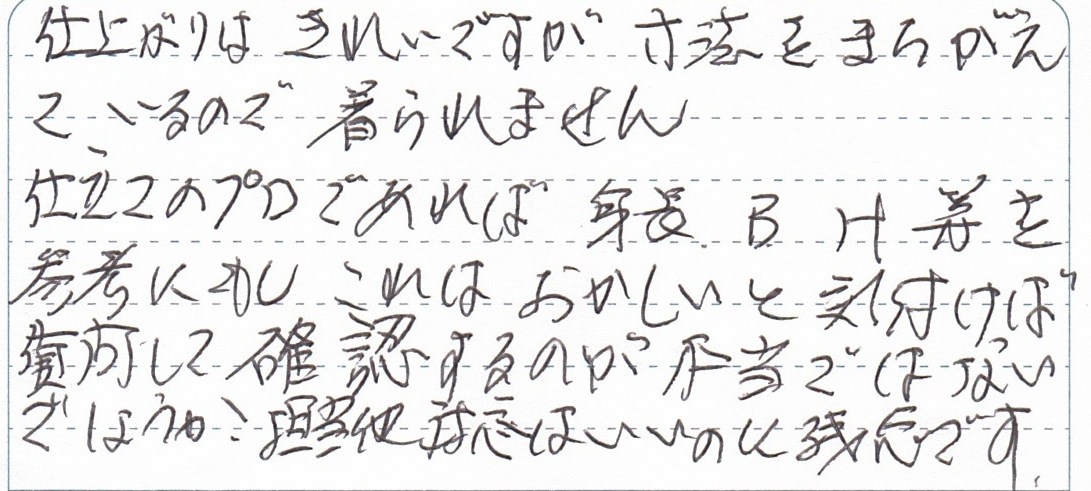 仕上がりは きれいですが 寸法をまちがえ
ているので 着られません
仕立てのプロであれば 身長 B H 等を
参考にもし これは おかしいと 気付けば
質問して 確認するのが 本当ではない
でしょうか? 担当他 対応はいいのに残念です